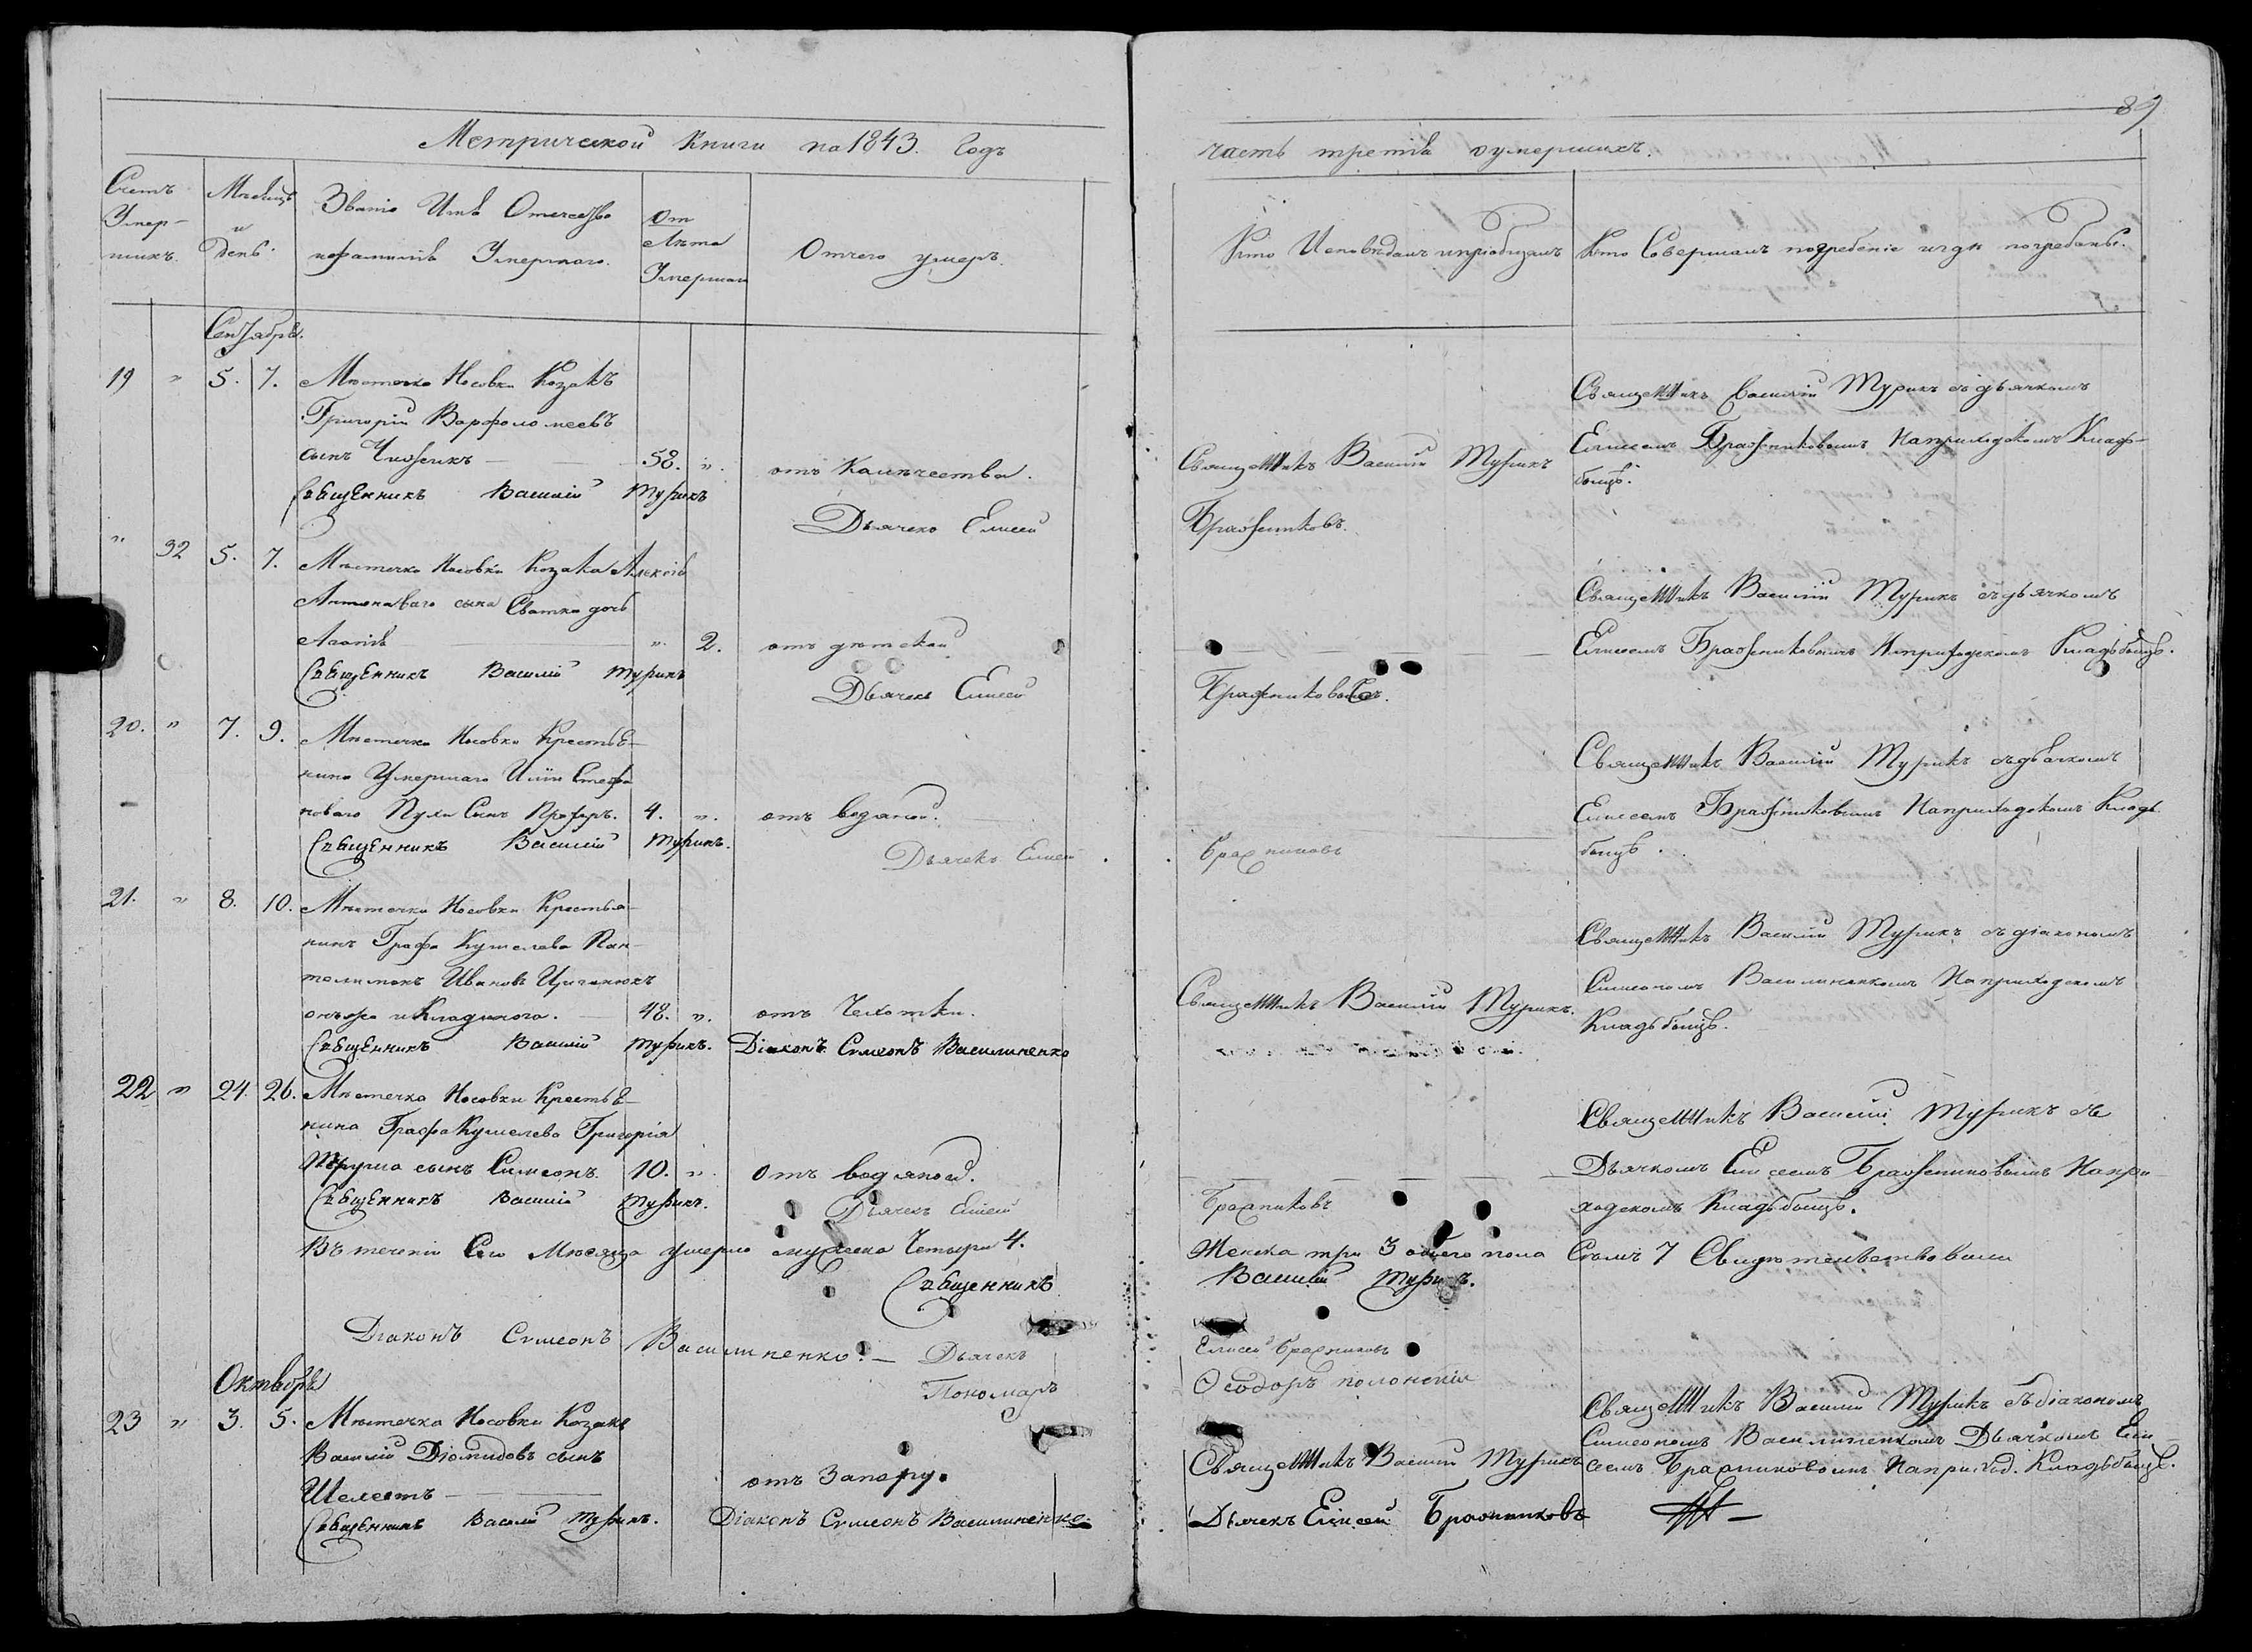 89
Метрической Книги на 1843. Годъ
часть третія оумершихъ.
Счетъ Умер-шихъ.
Мѣсяцъ и День.
Званіе Имя Отечество
ифамилія Умершаго.
Лѣта Умершаго
Отчего умеръ.
Кто Исповѣдалъ ипріобщалъ
Кто Совершалъ погребеніе игдѣ погребены.
Сентября.
19 " 5. 7. Мѣстечка Носовки Козакъ
Григорій Варфоломеевъ
сынъ 58. ". отъ Калѣчества.
Священникъ Василий Турикъ
Священникъ Василий Турикъ съдьячкомъ
Елисеемъ Бражниковымъ Наприходскомъ Клад-
бищѣ.
Священникъ Василий Турикъ
Дьячекъ Елисей Бражниковъ.
" 32 5. 7. Мѣстечка Носовки Козака Алексія
Антоноваго сына Сватка дочь
". 2. отъ дѣтской
Священникъ Василий Турикъ
Дьячекъ Елисей
Священникъ Василий Турикъ съдьячкомъ
Елисеемъ Бражниковымъ Наприходскомъ Кладьбищѣ.
20. " 7. 9. Мѣстечка Носовки Крестья-
нина Умершаго Иліи Стефа
новаго Пухи Сынъ 4. ". отъ водяной.
Священникъ Василий Турикъ.
Дьячекъ Елисей Бражниковъ
Священникъ Василий Турикъ съдьячкомъ
Елисеемъ Бражниковымъ Наприходскомъ Кладь
бищѣ.
21. " 8. 10. Мѣстечка Носовки Крестья-
нинъ Графа Кушелева Пан-
телимонъ Ивановъ
48. ". отъ Чехотки.
Священникъ Василий Турикъ. Діаконъ Симеонъ Василиненко
Священникъ Василий Турикъ.
Священникъ Василий Турикъ съдіакономъ
Симеономъ Василиненкомъ Наприходскомъ
Кладьбищѣ.
22 " 24. 26. Мѣстечка Носовки Крестья-
нина Графа Кушелева Григорія
сынъ Симеонъ. 10. ". отъ водяной.
Священникъ Василий Турикъ.
Дьячекъ Елисей Бражниковъ
Священникъ Василий Турикъ съ
Дьячкомъ Елисеемъ Бражниковымъ Напри
ходскомъ Кладьбищѣ.
Въ теченіи Сего Мѣсяца умерло мужеска Четыри 4. Женска три 3 обоего пола Семъ 7 Свидѣтельствовали
Священникъ Василий Турикъ.
Діаконъ Симеонъ Василиненко. — Дьячекъ Елисей Бражниковъ
Пономарь Ѳеодоръ
Октября
23 " 3. 5. Мѣстечка Носовки Козакъ
Василий Діомидовъ сынъ
Шелестъ отъ Запору.
Священникъ Василий Турикъ. Діаконъ Симеонъ Василиненко.
Священникъ Василий Турикъ
Дьячекъ Елисей Бражниковъ
Священникъ Василий Турикъ съдіакономъ
Симеономъ Василиненкомъ Дьячкомъ Ели
сеемъ Бражниковымъ Наприход. Кладьбищѣ.